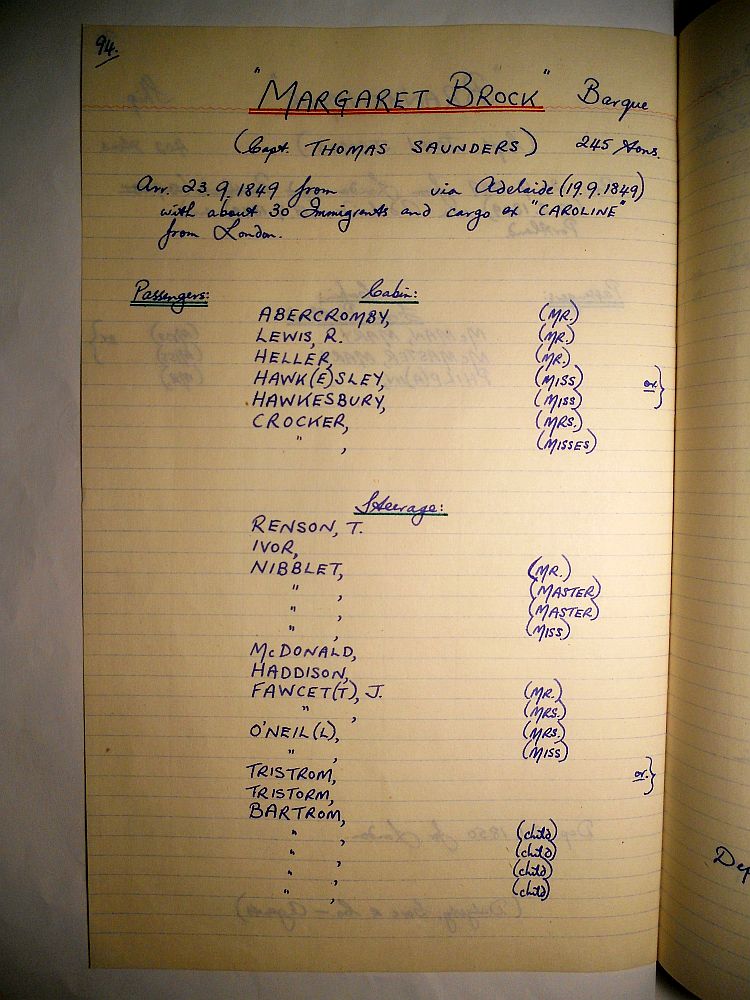 94.
"MARGARET BROCK" Barque
(Capt. THOMAS SAUNDERS) 245 tons.
Arr. 23.9.1849 from via Adelaide (19.9.1849)
with about 30 Immigrants and cargo ex "CAROLINE"
from London.
Passengers: Cabin:
ABERCROMBY, (MR.)
LEWIS, R. (MR.)
HELLER, (MR.)
HAWK(E)SLEY, (MISS) or.}
HAWKESBURY, (MISS)
CROCKER, (MRS.)
" , (MISSES)
Steerage:
RENSON, T.
IVOR,
NIBBLET, (MR.)
" , (MASTER)
" , (MASTER)
" , (MISS)
McDONALD,
HADDISON,
FAWCET(T), J. (MR.)
" , (MRS.)
O'NEIL(L), (MRS.)
" , (MISS)
TRISTROM, or.}
TRISTORM,
BARTROM,
" , (child)
" , (child)
" , (child)
" , (child)
Dep